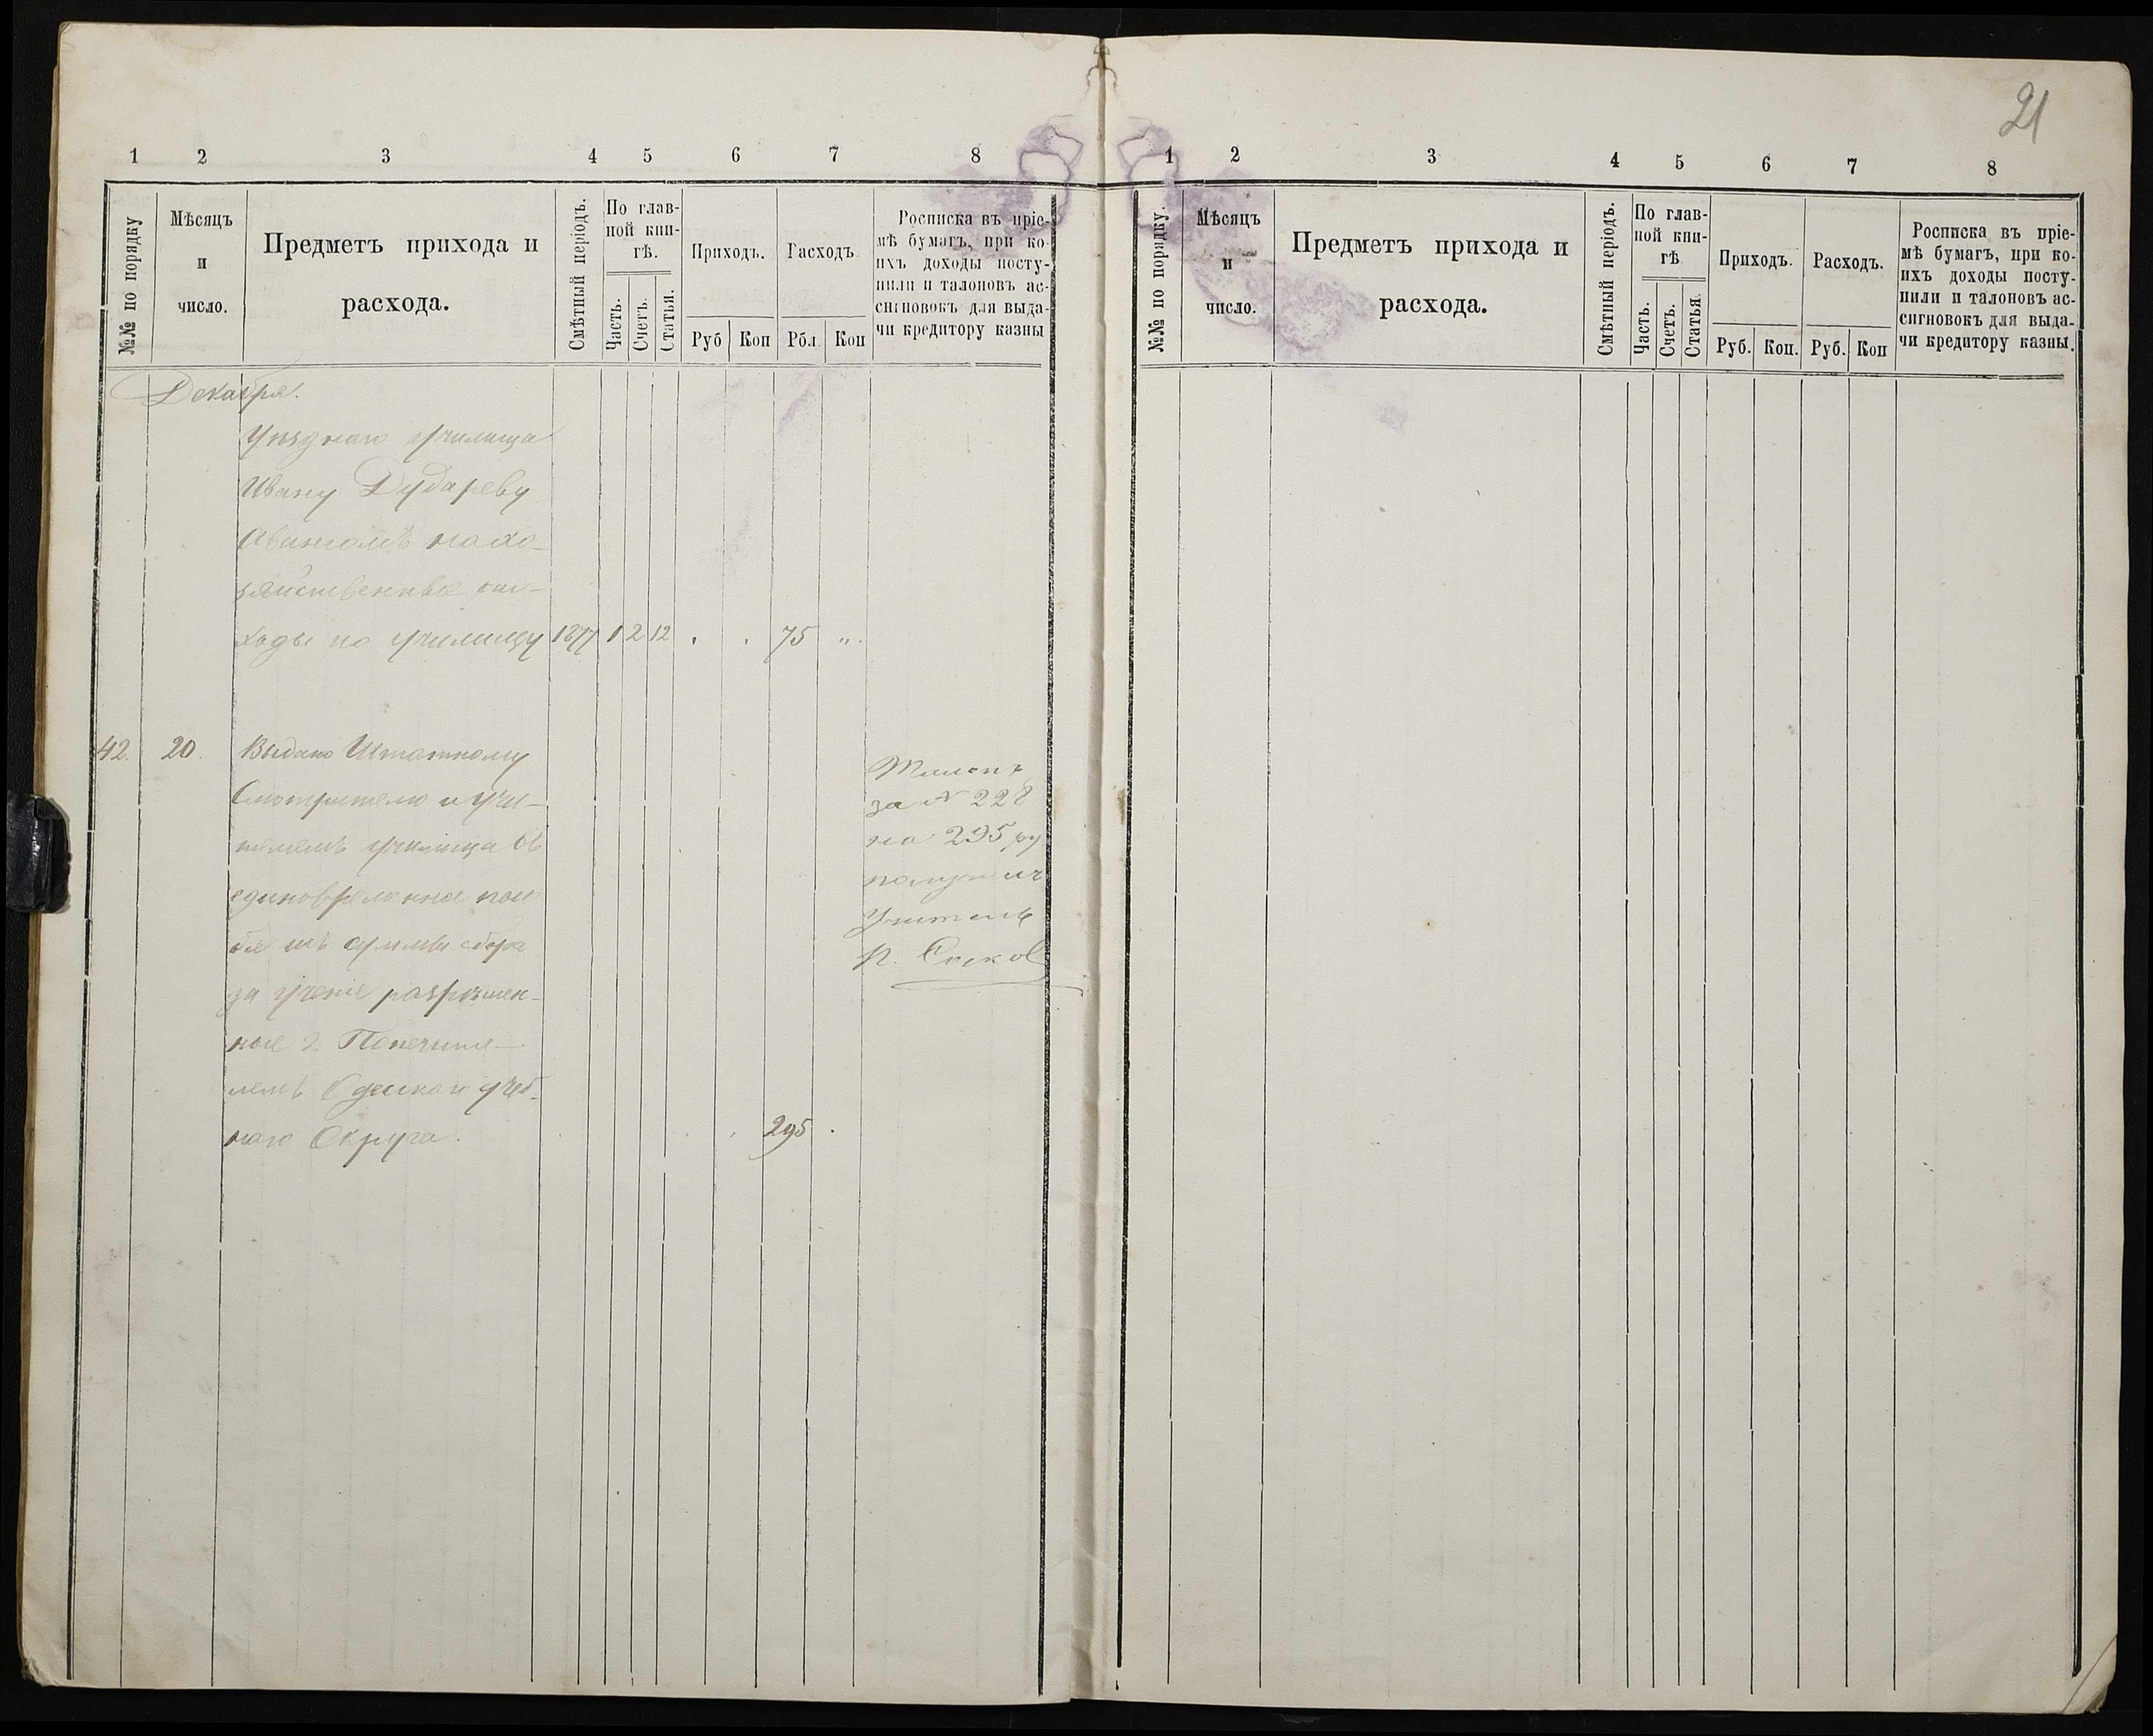 21
1 2 3 4 5 6 7 8
№№ по порядку
Мѣсяцъ
и
число.
Предметъ прихода и
расхода.
Смѣтный періодъ.
По глав-
ной кни-
гѣ.
Часть.
Счетъ.
Статья.
Приходъ.
Руб Коп
Расходъ
Рбл. Коп
Росписка въ пріе-
мѣ бумагъ, при ко-
ихъ доходы посту-
пили и талоновъ ас-
сигновокъ для выда-
чи кредитору казны
Декабря.
Уѣзднаго училища
Ивану Дубареву
Авансомъ на хо-
зяйственные рас-
ходы по училищу 1877 1 2 12 . . 75 „.
42. 20. Выдано Штатному
Смотрителю и учи-
телямъ училища въ
единовременное посо-
бие изъ суммы сбора
за учение разрѣшен-
ное г. Попечите-
лемъ Одескаго учеб-
наго Округа. . . 295 .
Талонъ
за № 228
на 295 ру
получилъ
Учитель
1 2 3 4 5 6 7 8
№№ по порядку.
Мѣсяцъ
и
число.
Предметъ прихода и
расхода.
Смѣтный періодъ.
По глав-
ной кни-
гѣ
Часть.
Счетъ.
Статья.
Приходъ.
Руб. Коп.
Расходъ.
Руб. Коп
Росписка въ пріе-
мѣ бумагъ, при ко-
ихъ доходы посту-
пили и талоновъ ас-
сигновокъ для выда-
чи кредитору казны.